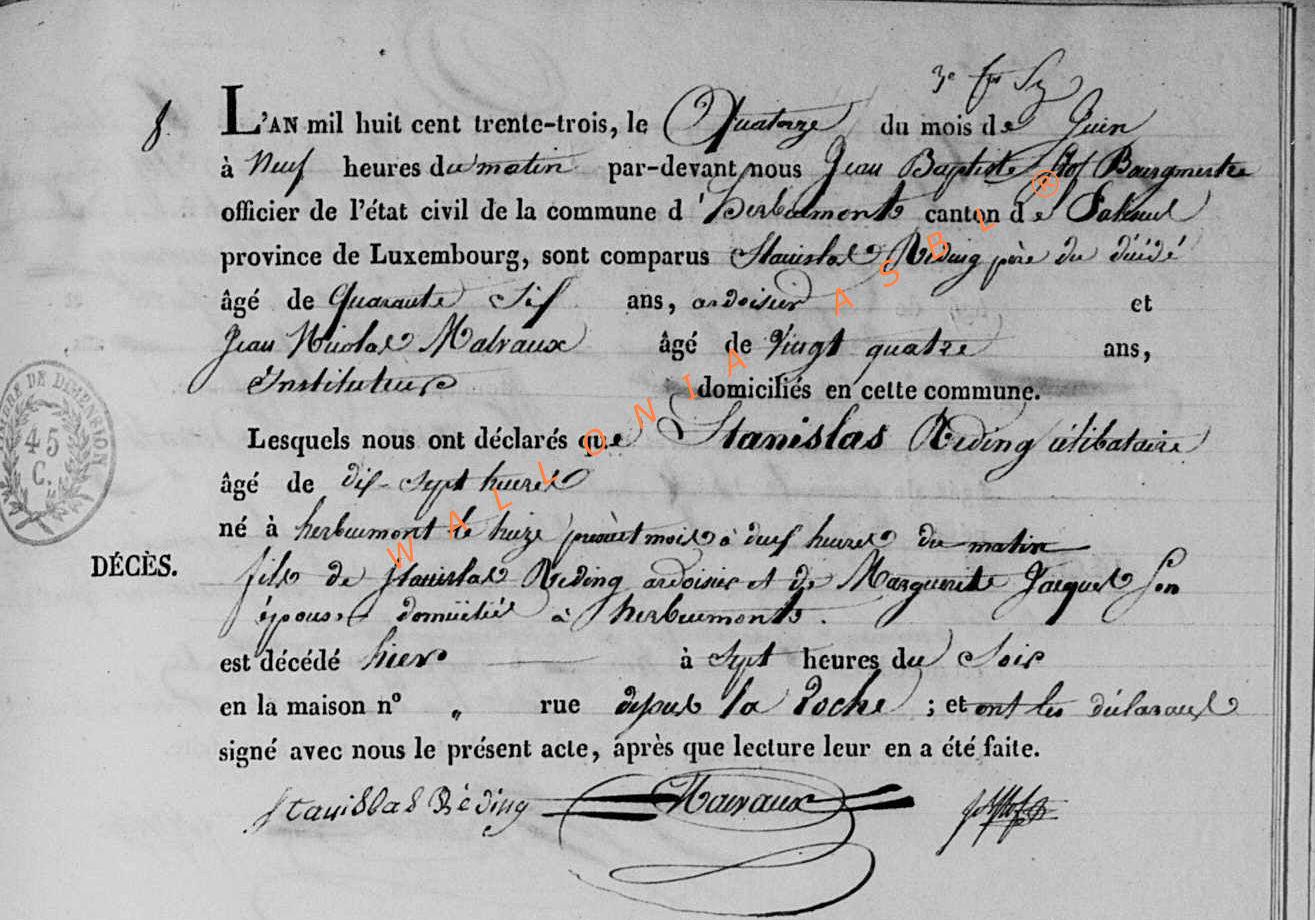 8.
L'AN mil huit cent trente-trois, le Quatorze du mois de Juin
à Neuf heures du matin par-devant nous Jean Baptiste Bourgmestre
officier de l'état civil de la commune d'herbeumont canton de Paliseul
province de Luxembourg, sont comparus Stanislas Reding père du décédé
âgé de Quarante Six ans, ardoisier et
Jean Nicolas Malvaux âgé de Vingt quatre ans,
Instituteur domiciliés en cette commune.
Lesquels nous ont déclarés que Stanislas Reding célibataire
âgé de dix-sept heures
né à herbeumont le treize mois à deux heures du matin
DÉCÈS.
fils de Stanislas Reding ardoisier et de Marguerite Jacques Son
épouse domicilié à herbeumont.
est décédé hier à Sept heures du Soir
en la maison nº " rue dessus la Roche ; et ont les déclarants
signé avec nous le présent acte, après que lecture leur en a été faite.
Stanislas Réding Malvaux
45
C.
WALLONIA ASBL ®